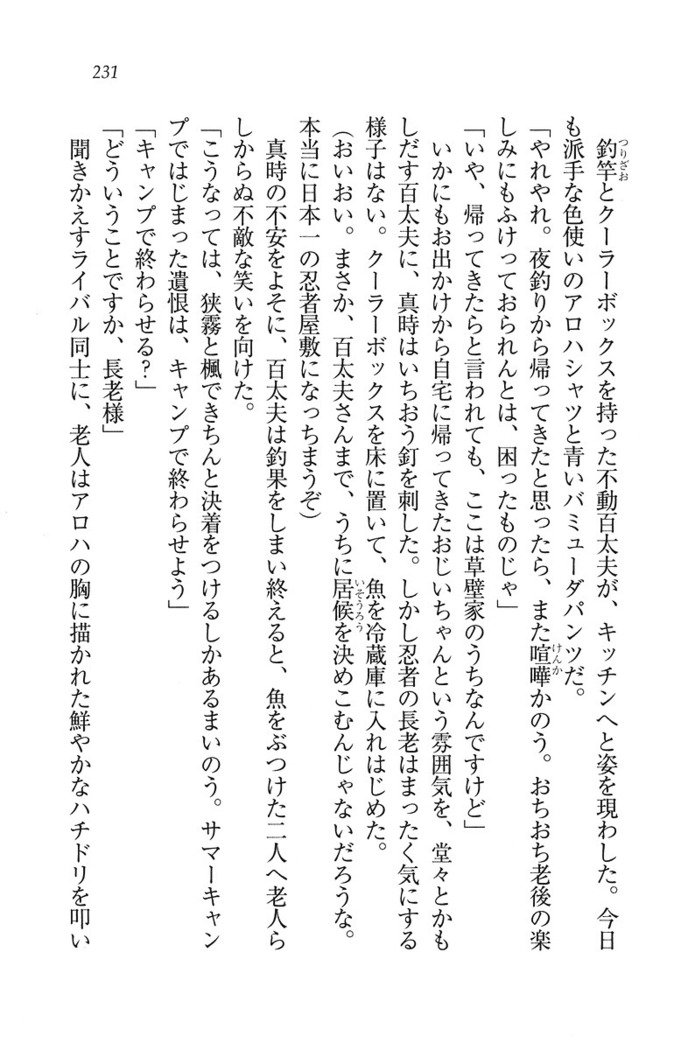 231
釣竿とクーラーボックスを持った不動百太夫が、キッチンへと姿を現わした。今日
も派手な色使いのアロハシャツと青いバミューダパンツだ。
「やれやれ。夜釣りから帰ってきたと思ったら、また喧嘩かのう。おちおち老後の楽
しみにもふけっておられんとは、困ったものじゃ」
「いや、帰ってきたらと言われても、ここは草壁家のうちなんですけど」
いかにもお出かけから自宅に帰ってきたおじいちゃんという雰囲気を、堂々とかも
しだす百太夫に、真時はいちおう釘を刺した。しかし忍者の長老はまったく気にする
様子はない。クーラーボックスを床に置いて、魚を冷蔵庫に入れはじめた。
（おいおい。まさか、百太夫さんまで、うちに居候を決めこむんじゃないだろうな。
本当に日本一の忍者屋敷になっちまうぞ）
真時の不安をよそに、百太夫は釣果をしまい終えると、魚をぶつけた二人へ老人ら
しからぬ不敵な笑いを向けた。
「こうなっては、狭霧と楓できちんと決着をつけるしかあるまいのう。サマーキャン
プではじまった遺恨は、キャンプで終わらせよう」
「キャンプで終わらせる？」
「どういうことですか、長老様」
聞きかえすライバル同士に、老人はアロハの胸に描かれた鮮やかなハチドリを叩い
つりざお
けんか
いそうろう